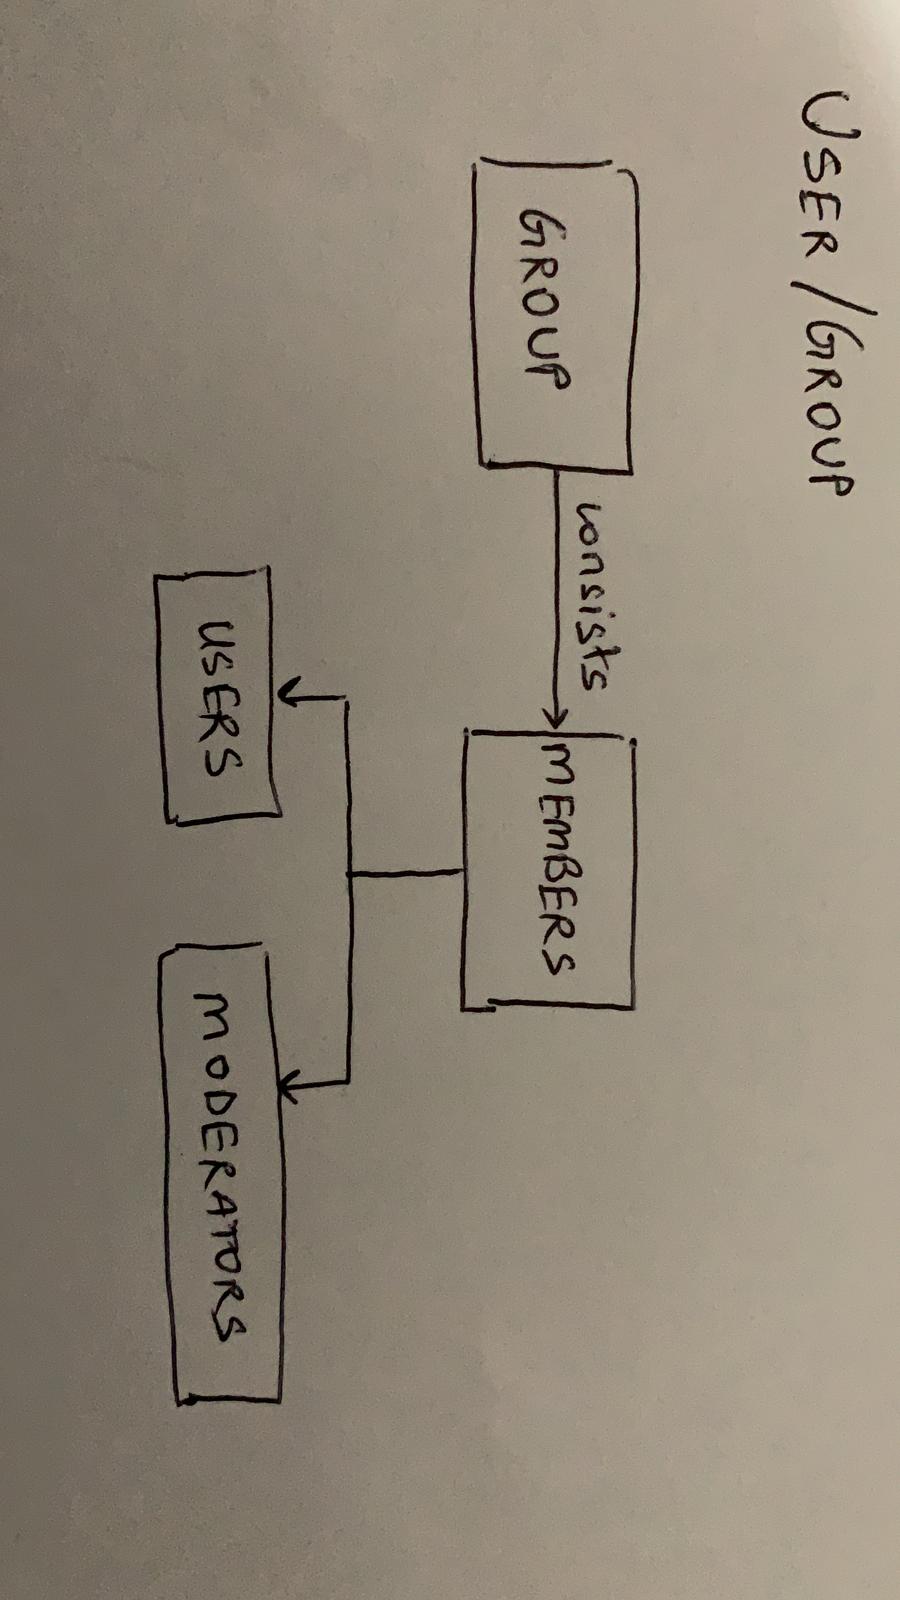 USER/GROUP
GROUP
consists
MEMBERS
USERS
MODERATORS